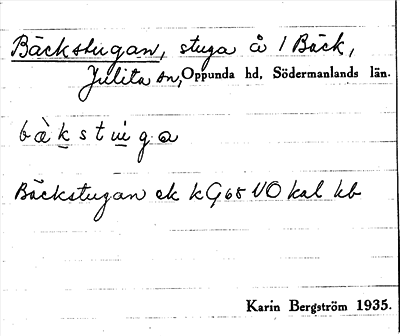 Bäckstugan, stuga å 1 Bäck,
Julita sn, Oppunda hd, Södermanlands län.
Bäckstugan ek kG 68 NO kal kb
Karin Bergström 1935.